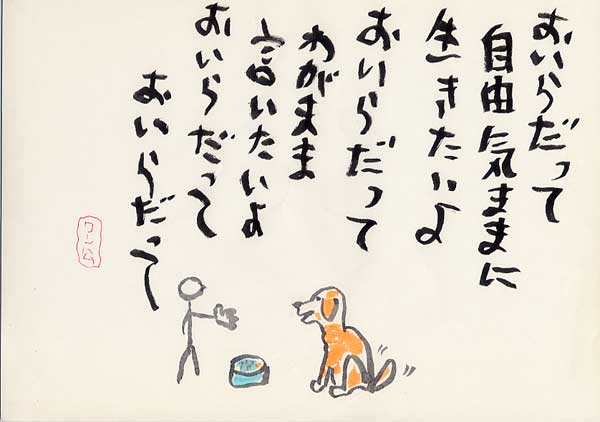 おいらだって
自由気ままに
生きたいよ
おいらだって
わがまま
言いたいよ
おいらだって
おいらだって
ワン公